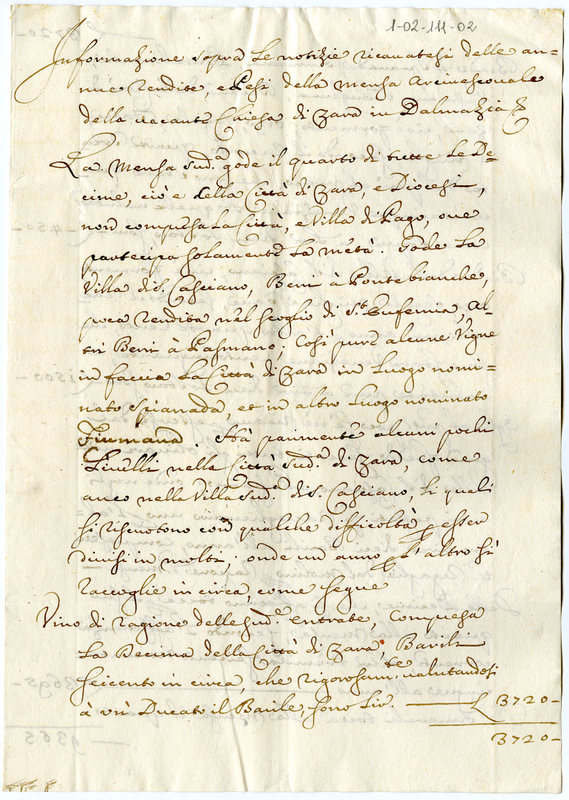 1-02-111-02
Informazione sopra le notizie ricavatesi delle an=
nue rendite, e Pesi della Mensa Arcivescovale
della vacante Chiesa di Zara in Dalmazia
La Mensa sud.ª gode il quarto di tutte le De=
cime, ciò è della Città di Zara, e Diocesi,
non compresa la Città, e Villa di Pago, ove
partecipa solamente la metà. Gode la
Villa di S. Casciano, Beni à Pontebianche,
poca rendita nel scoglio di S.ta Eufemia, Al=
tri Beni à Pasmano; Così pure alcune Vigne
in faccia la Città di Zara in luogo nomi=
nato Spianada, et in altro luogo nominato
Fiumana. Hà parimente alcuni pochi
Livelli nella Città sud.ª di Zara, come
anco nella Villa sud.ª di S. Casciano, li quali
si riscuotono con qualche difficoltà p esser
divisi in molti, onde un anno p l'altro si
raccoglie in circa, come segue
Vino di ragione delle sud.e entrate, compresa
la Decima della Città di Zara, Barili
seicento in circa, che rigorosam.te valutandosi
à un Ducato il Barile, sono Lir. — L 3720-
3720-